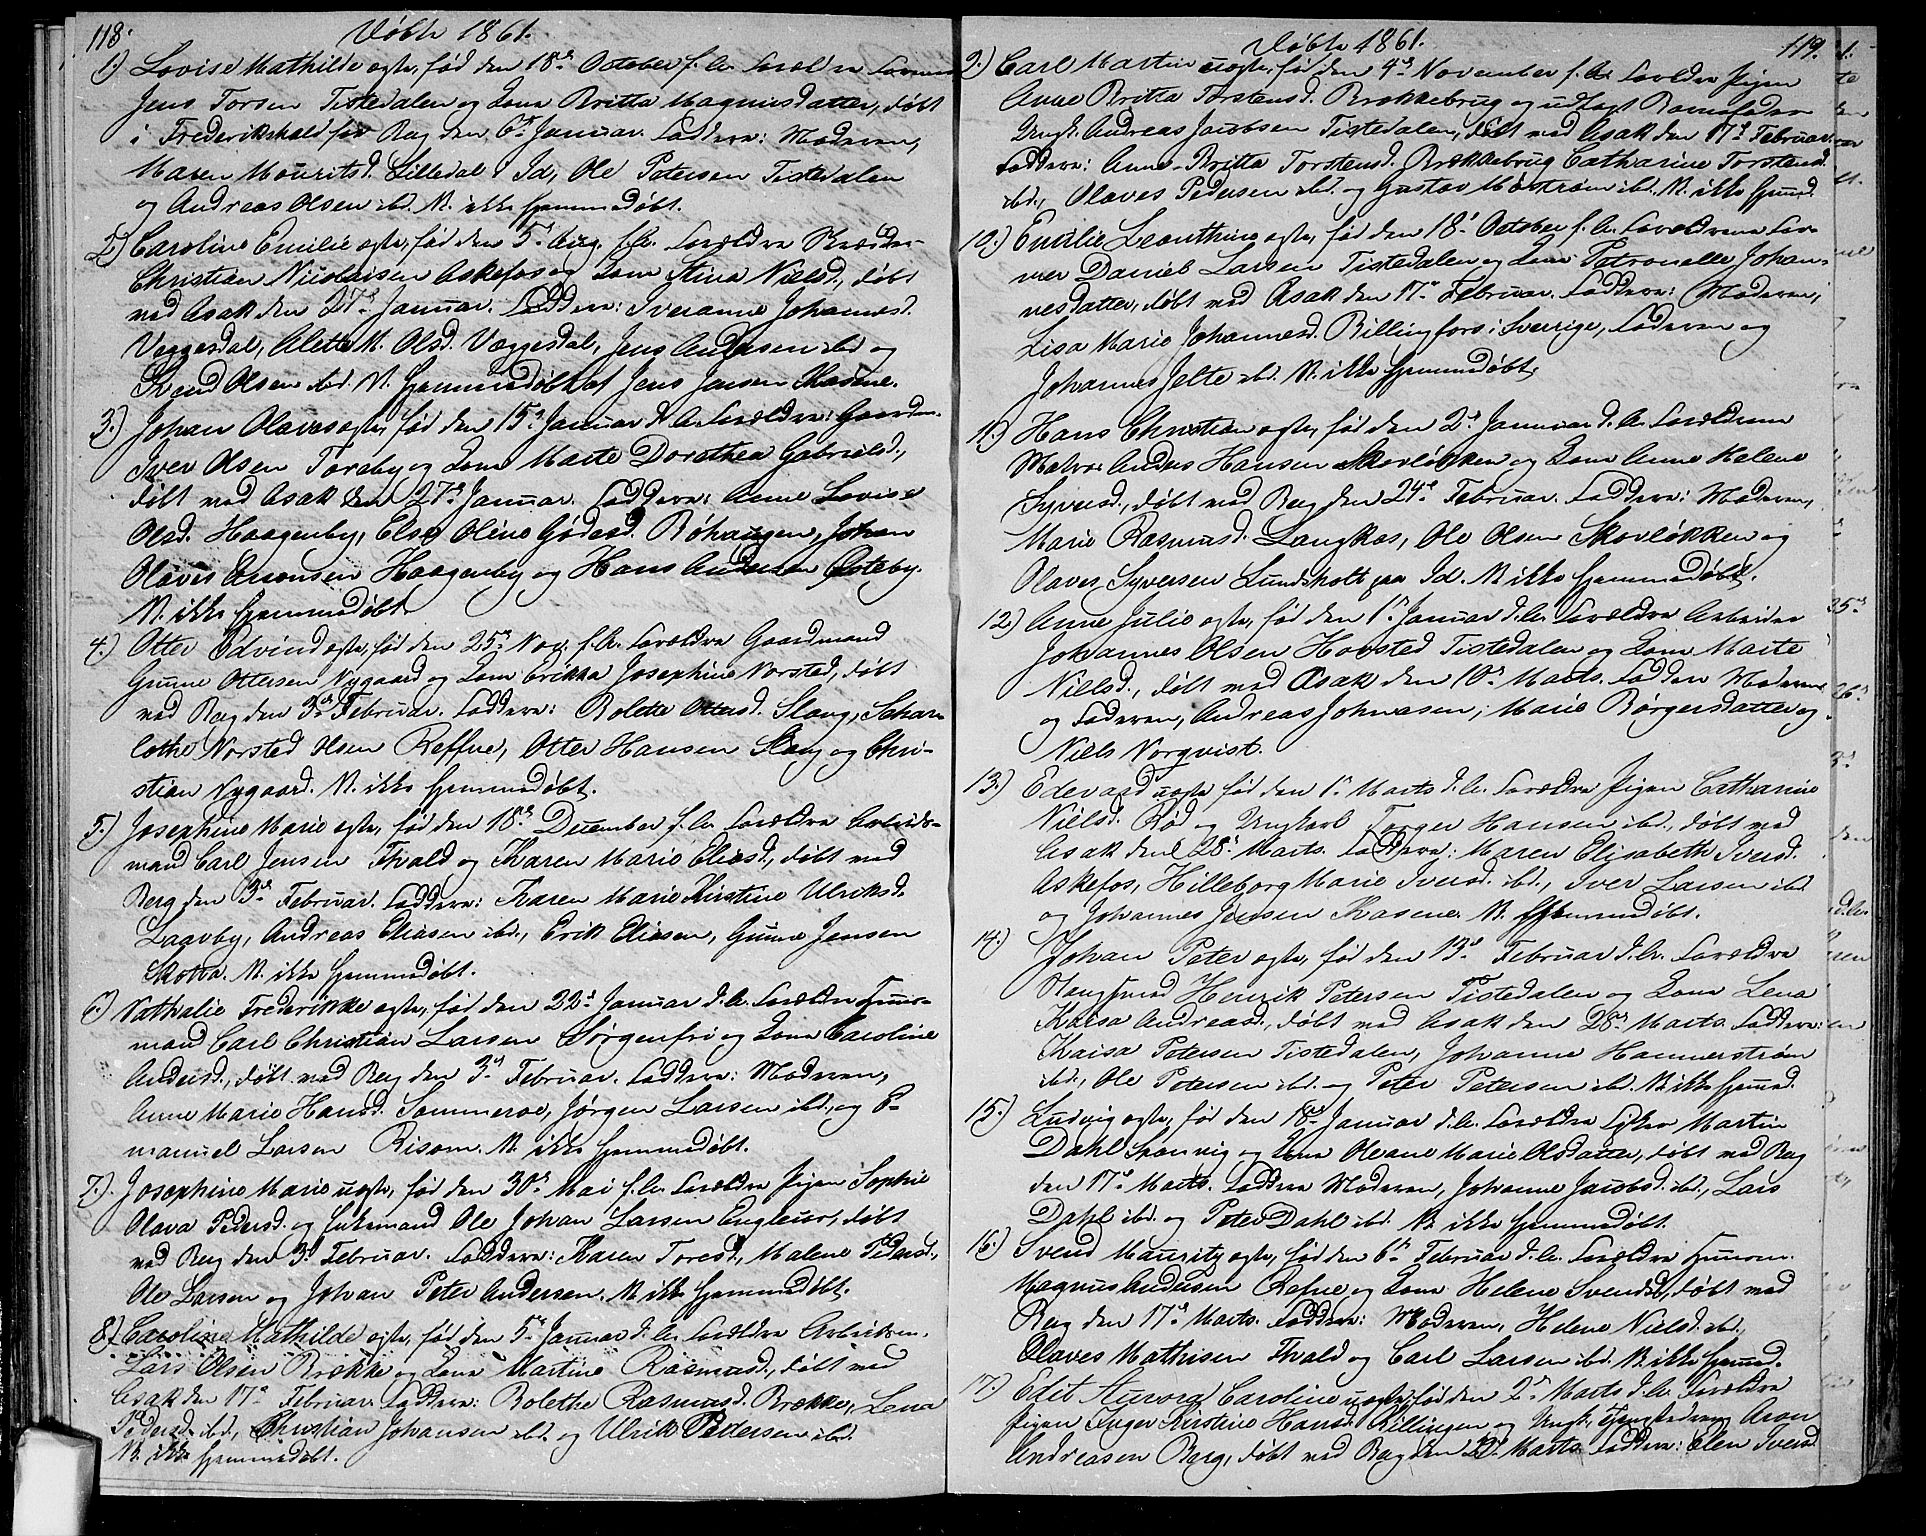 118.
Döbte 1861.
1.) Lovise Mathilde ægte, föd den 18de October f. A. Forældre
Jens Torsen Tistedalen og Kone Britta Magnusdatter, döbt
i Frederikshald for Berg den 6te Januar. Faddere: Moderen,
Maren Mouritsd. Lilledal i Id, Ole Petersen Tistedalen
og Andreas Olsen ibd. N. ikke hjemmedöbt.
2.) Caroline Emilie ægte, föd den 5te Aug. f. A. Forældre
Christian Nicolaisen Askefos og Kone Stina Nielsd., döbt
ved Asak den 27de Januar. Faddere: Iveranne Johannesd.
Veggesdal, Alette M. Olsd. Væggesdal, Jens Andersen ibd og
Svend Olsen ibd. N. hjemmedöbt af Jens Jensen Kasene.
3.) Johan Olaves ægte, föd den 15de Januar d. A. Forældre: Gaardm.
Iver Olsen Torsby og Kone Marte Dorothea Gabrielsd.,
döbt ved Asak den 27de Januar. Faddere: Anne Lovise
Olsd. Haagenby, Else Oline Gödesd. Röhaugen, Johan
Olaves Haagenby og Hans Andersen
N. ikke hjemmedöbt.
4.) Otter Edvind ægte, föd den 25de Nov. f. A. Forældre Gaardmand
Gunne Ottersen Nygaard og Kone Erikka Josephine Norsted, döbt
ved Berg den 3de Februar. Faddere: Bolette Ottersd. Slang, Schar-
lothe Norsted Olsen Reffne, Otter Hansen Slang og Chri-
stian Nygaard. N. ikke hjemmedöbt.
5.) Josephine Marie ægte, föd den 18de December f. A. Forældre Arbeids-
mand Carl Jensen Fvald og Karen Marie Eliasd., döbt ved
Berg den 3de Februar. Faddere: Karen Marie Kirstine Ulriksd.
Lagvby, Andreas Eliasen ibd., Erik Eliasen, Gunne Jensen
Skotta. N. ikke hjemmedöbt.
6.) Nathalie Frederikke ægte, föd den 22de Januar d. A. Forældre Huus-
mand Carl Christian Larsen Sørgenfri og Kone Caroline
Andersd., döbt ved Berg den 3de Februar. Faddere: Moderen,
Anne Marie Hansd. Sommeroe, Jørgen Larsen ibd., og E-
manuel Larsen Risom. N. ikke hjemmedöbt.
7.) Josephine Marie uægte, föd den 30te Mai f. A. Forældre Pigen Sophie
Olava Pedersd. og Enkemand Ole Johan Larsen, döbt
ved Berg den 3de Februar. Faddere: Karen Toresd., Malene Pedersd.,
Ole Larsen og Johan Peter Andersen. N. ikke hjemmedöbt.
8.) Caroline Mathilde ægte, föd den 5te Januar d. A. Forældre Arbeidsm.
Lars Olsen Brække og Kone Martine Rasmusd., döbt ved
Asak den 17de Februar. Faddere: Bolethe Rasmusd. Brække, Lena
Pedersd. ibd., Christian Johansen ibd. og Ulrik Pedersen ibd.
N. ikke hjemmedöbt.
Döbte 1861.
119.
9.) Carl Martin uægte, föd den 4de November f. A. Forældre Pigen
Anne Britta Torstensd. Brekkebrug og udlagt Barnefader
Ungk. Andreas Jacobsen Tistedalen, döbt ved Asak den 17de Februar.
Faddere: Anne Britta Torstensd. Brekkebrug Catharine Torstensd.
ibd., Olaves Pedersen ibd. og Gustav Möström ibd. N. ikke hjemd.
10.) Emilie Leonthine ægte, föd den 18de October f. A. Forældrene For-
mer Daniel Larsen Tistedalen og Kone Petronelle Johan-
nesdatter, döbt ved Asak den 17de Februar. Faddere: Moderen,
Lisa Marie Johannesd. Billingfors i Sverige, Faderen og
Johannes Jelte ibd. N. ikke hjemmedöbt.
11.) Hans Christian ægte, föd den 2den Januar d. A. Forældrene
Matros Anders Hansen Skovløkken og Kone Anne Helene
Syversd., döbt ved Berg den 24de Februar. Faddere: Moderen,
Marie Rasmusd. Langkas, Ole Olsen Skovløkken og
Olaves Syversen Lundsholt paa Id. N. ikke hjemmedöbt.
12.) Anne Julie ægte, föd den 1ste Januar d. A. Forældre Arbeider
Johannes Olsen Hovsted Tistedalen og Kone Marte
Nielsd., döbt ved Asak den 10de Marts. Faddere Moderen
og Faderen, Andreas Johnasen, Marie Börgersdatter og
Niels Norqvist.
13.) Edevard uægte föd den 1ste Marts d. A. Forældre Pigen Catharine
Nielsd. Röd og Ungkarl Torger Hansen ibd., döbt ved
Asak den 28de Marts. Faddere: Maren Elisabeth Iversd.
Askefos, Hilleborg Marie Iversd. ibd., Iver Larsen ibd
og Johannes Jensen Kasene. N. hjemmedöbt.
14.) Johan Peter ægte, föd den 13de Februar d. A. Forældre
Henrik Petersen Tistedalen og Kone Lena
Kaisa Andreasd., döbt ved Asak den 28de Marts. Faddere:
Kaisa Petersen Tistedalen, Johanne Hammerström
ibd., Ole Petersen ibd. og Peter Petersen ibd. N. ikke hjemd.
15.) Ludvig ægte, föd den 18de Januar d. A. Forældre Martin
Dahl Sponvig og Kone Oleane Marie Olsdatter, döbt ved Berg
den 17de Marts. Faddere Moderen, Johanne Jacobsd. ibd., Lars
Dahl ibd. og Peter Dahl ibd. N. ikke hjemmedöbt.
16.) Svend Mauritz ægte, föd den 6te Februar d. A. Forældre Huusm.
Magnus Andersen Refne og Kone Helene Svendsd., döbt ved
Berg den 17de Marts. Faddere: Moderen, Helene Nielsd. ibd.,
Olaves Mathisen Fvald og Carl Larsen ibd. N. ikke hjemd.
17.) Edit Aurora Caroline uægte, föd den 2den Marts d. A. Forældre
Pigen Inger Kirstine Hansd. Killingen og Ungk. Aron
Andreasen Berg, döbt ved Berg den Marts. Faddere: Elen Iversd.